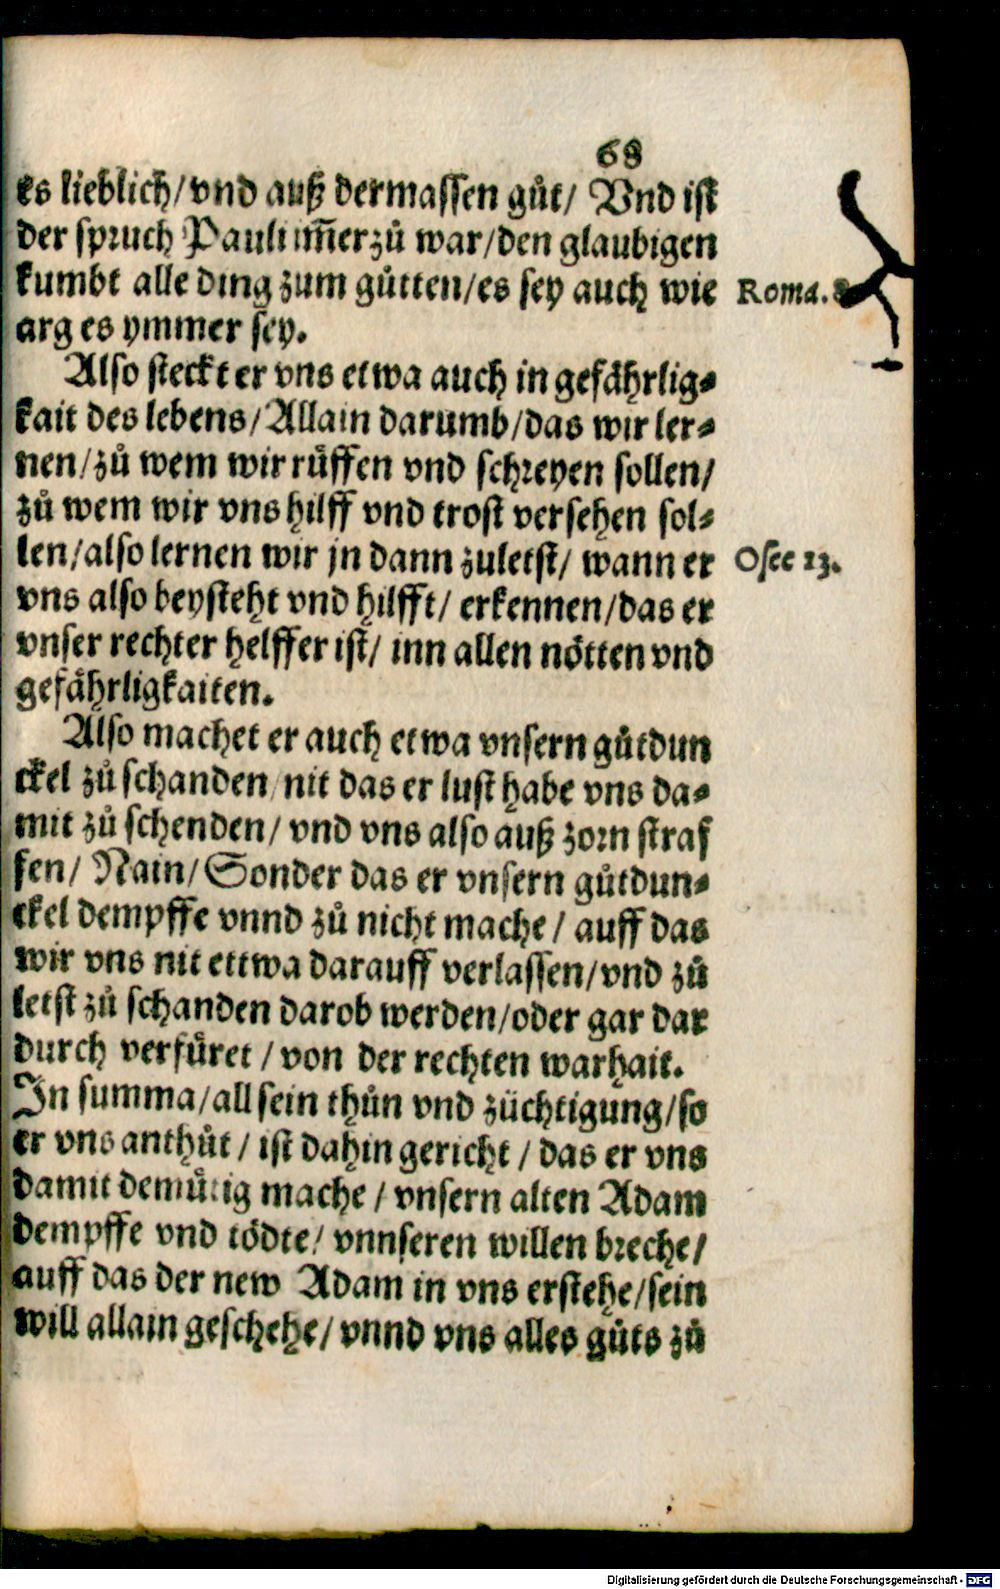 68
es lieblich/ vnd auß dermassen gůt/ Vnd ist
der spruch Pauli im̃erzů war/den glaubigen
kumbt alle ding zum gůtten/es sey auch wie
Roma. 8
arg es ymmer sey.
Also steckt er vns etwa auch in gefährlig⸗
kait des lebens/Allain darumb/das wir ler⸗
nen/zů wem wir rüffen vnd schreyen sollen/
zů wem wir vns hilff vnd trost versehen sol⸗
len/also lernen wir jn dann zuletst/ wann er
Osee 13.
vns also beysteht vnd hilfft/ erkennen/das er
vnser rechter helffer ist/ inn allen nötten vnd
gefährligkaiten.
Also machet er auch etwa vnsern gůtdun
ckel zů schanden/nit das er lust habe vns da⸗
mit zů schenden/ vnd vns also auß zorn straf
fen/ Nain/Sonder das er vnsern gůtdun⸗
ckel dempffe vnnd zů nicht mache/ auff das
wir vns nit ettwa darauff verlassen/vnd zů
letst zů schanden darob werden/oder gar dar
durch verfüret/von der rechten warhait.
In summa/all sein thůn vnd züchtigung/so
er vns anthůt/ ist dahin gericht/ das er vns
damit demütig mache/ vnsern alten Adam
dempffe vnd tödte/ vnnseren willen breche/
auff das der new Adam in vns erstehe/sein
will allain geschehe/ vnnd vns alles gůts zů
Digitalisierung gefördert durch die Deutsche Forschungsgemeinschaft - DFG